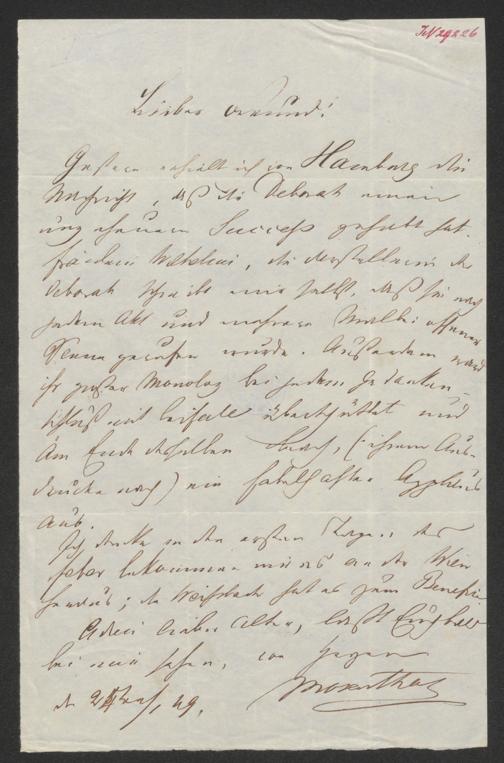 IN 29226
Lieber Freund!
Gestern erhielt ich von Hamburg die
Nachricht, daß die Deborah einen
ungeheuren Success gehabt hat.
Fräulein, die Darstellerin der
Deborah schreibt mir selbst, daß sie nach
jedem Akt und mehrere Male bei offener
Scene gerufen wurde. Außerdem ward
ihr großer Monolog bei jedem Gedanken-
schluß mit Beifall überschüttet und
am Ende desselben brach, (ihrem Aus-
drucke nach) ein fabelhafter Applaus
aus.
Ich denke in den ersten Tagen des
bekommen wir es an der Wien
heraus; die hat es zum Benefiz.
Adieu lieber Alter, laßt Euch
bei mir sehen, von
Mosenthal
den 49.